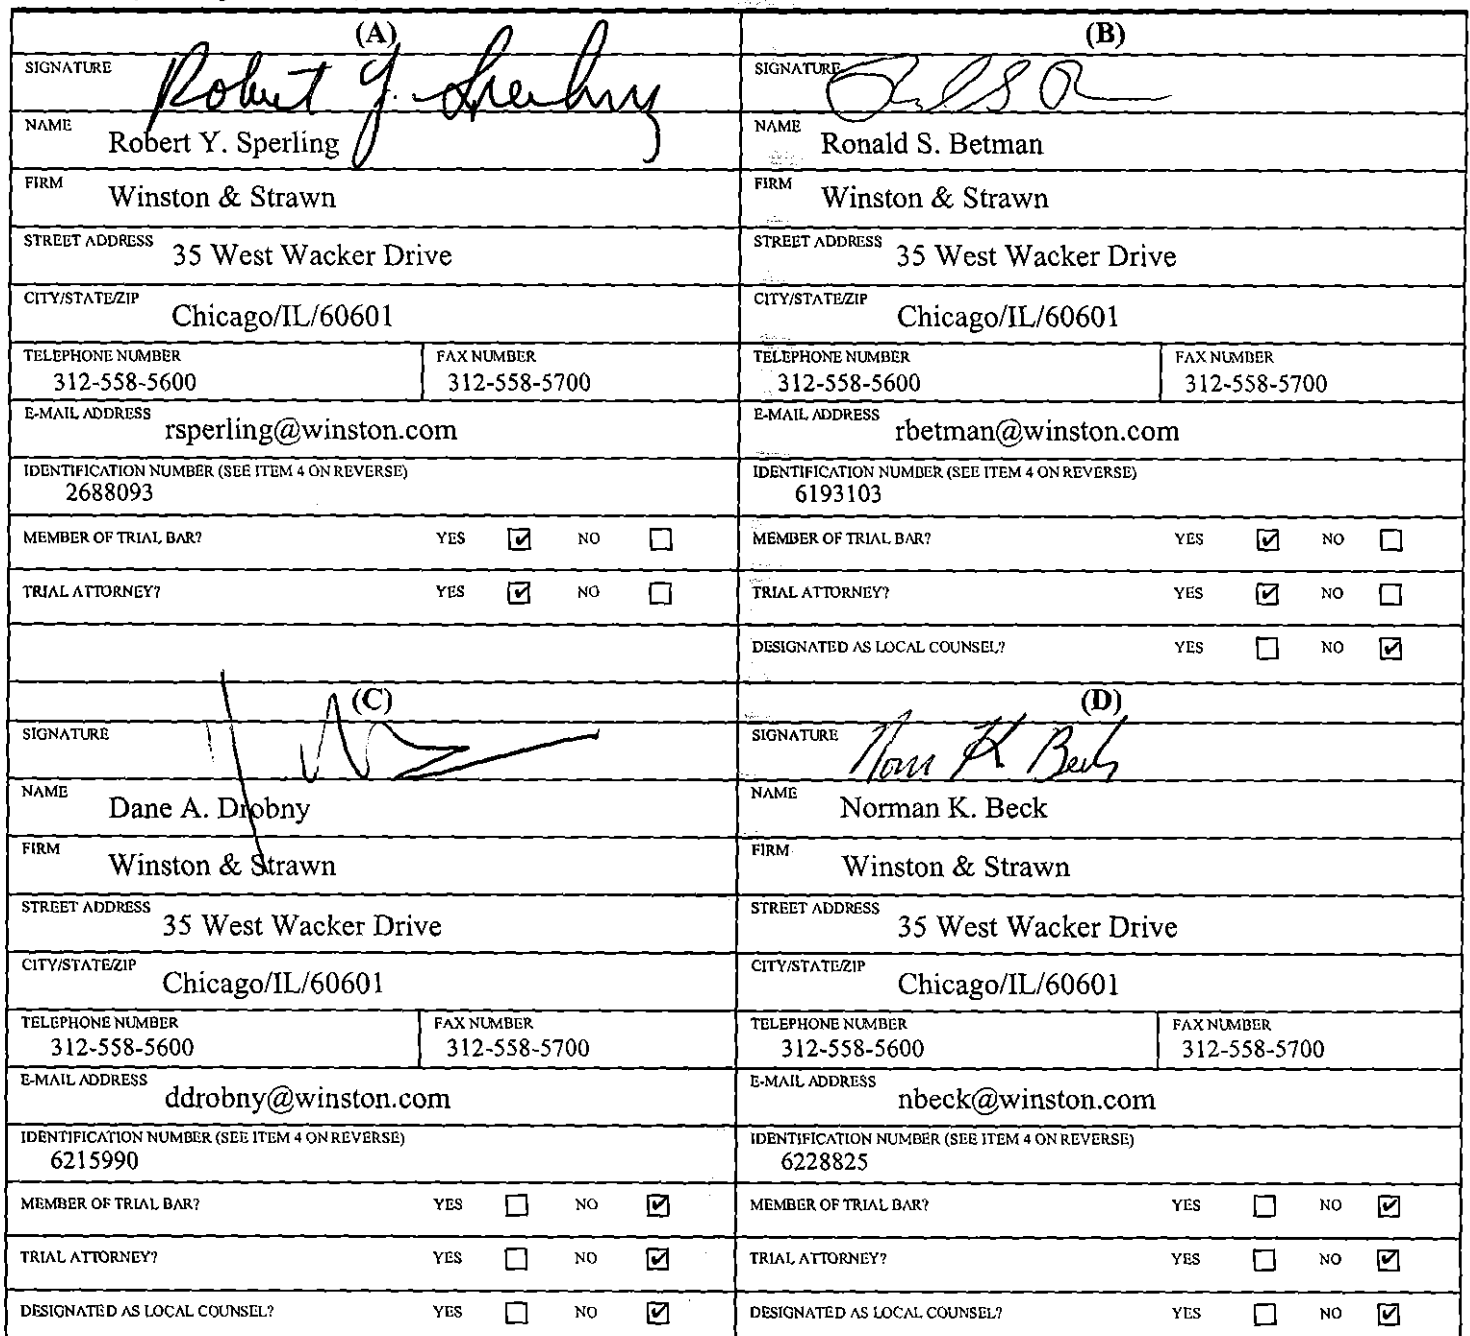 (A)
SIGNATURE Robert Y. Sperling
NAME Robert Y. Sperling
FIRM Winston & Strawn
STREET ADDRESS 35 West Wacker Drive
CITY/STATE/ZIP Chicago/IL/60601
TELEPHONE NUMBER FAX NUMBER
312-558-5600 312-558-5700
E-MAIL ADDRESS rsperling@winston.com
IDENTIFICATION NUMBER (SEE ITEM 4 ON REVERSE)
2688093
MEMBER OF TRIAL BAR? YES ☑ NO ☐
TRIAL ATTORNEY? YES ☑ NO ☐
(B)
SIGNATURE
NAME Ronald S. Betman
FIRM Winston & Strawn
STREET ADDRESS 35 West Wacker Drive
CITY/STATE/ZIP Chicago/IL/60601
TELEPHONE NUMBER FAX NUMBER
312-558-5600 312-558-5700
E-MAIL ADDRESS rbetman@winston.com
IDENTIFICATION NUMBER (SEE ITEM 4 ON REVERSE)
6193103
MEMBER OF TRIAL BAR? YES ☑ NO ☐
TRIAL ATTORNEY? YES ☑ NO ☐
DESIGNATED AS LOCAL COUNSEL? YES ☐ NO ☑
(C)
SIGNATURE
NAME Dane A. Drobny
FIRM Winston & Strawn
STREET ADDRESS 35 West Wacker Drive
CITY/STATE/ZIP Chicago/IL/60601
TELEPHONE NUMBER FAX NUMBER
312-558-5600 312-558-5700
E-MAIL ADDRESS ddrobny@winston.com
IDENTIFICATION NUMBER (SEE ITEM 4 ON REVERSE)
6215990
MEMBER OF TRIAL BAR? YES ☐ NO ☑
TRIAL ATTORNEY? YES ☐ NO ☑
DESIGNATED AS LOCAL COUNSEL? YES ☐ NO ☑
(D)
SIGNATURE Norm K Beck
NAME Norman K. Beck
FIRM Winston & Strawn
STREET ADDRESS 35 West Wacker Drive
CITY/STATE/ZIP Chicago/IL/60601
TELEPHONE NUMBER FAX NUMBER
312-558-5600 312-558-5700
E-MAIL ADDRESS nbeck@winston.com
IDENTIFICATION NUMBER (SEE ITEM 4 ON REVERSE)
6228825
MEMBER OF TRIAL BAR? YES ☐ NO ☑
TRIAL ATTORNEY? YES ☐ NO ☑
DESIGNATED AS LOCAL COUNSEL? YES ☐ NO ☑